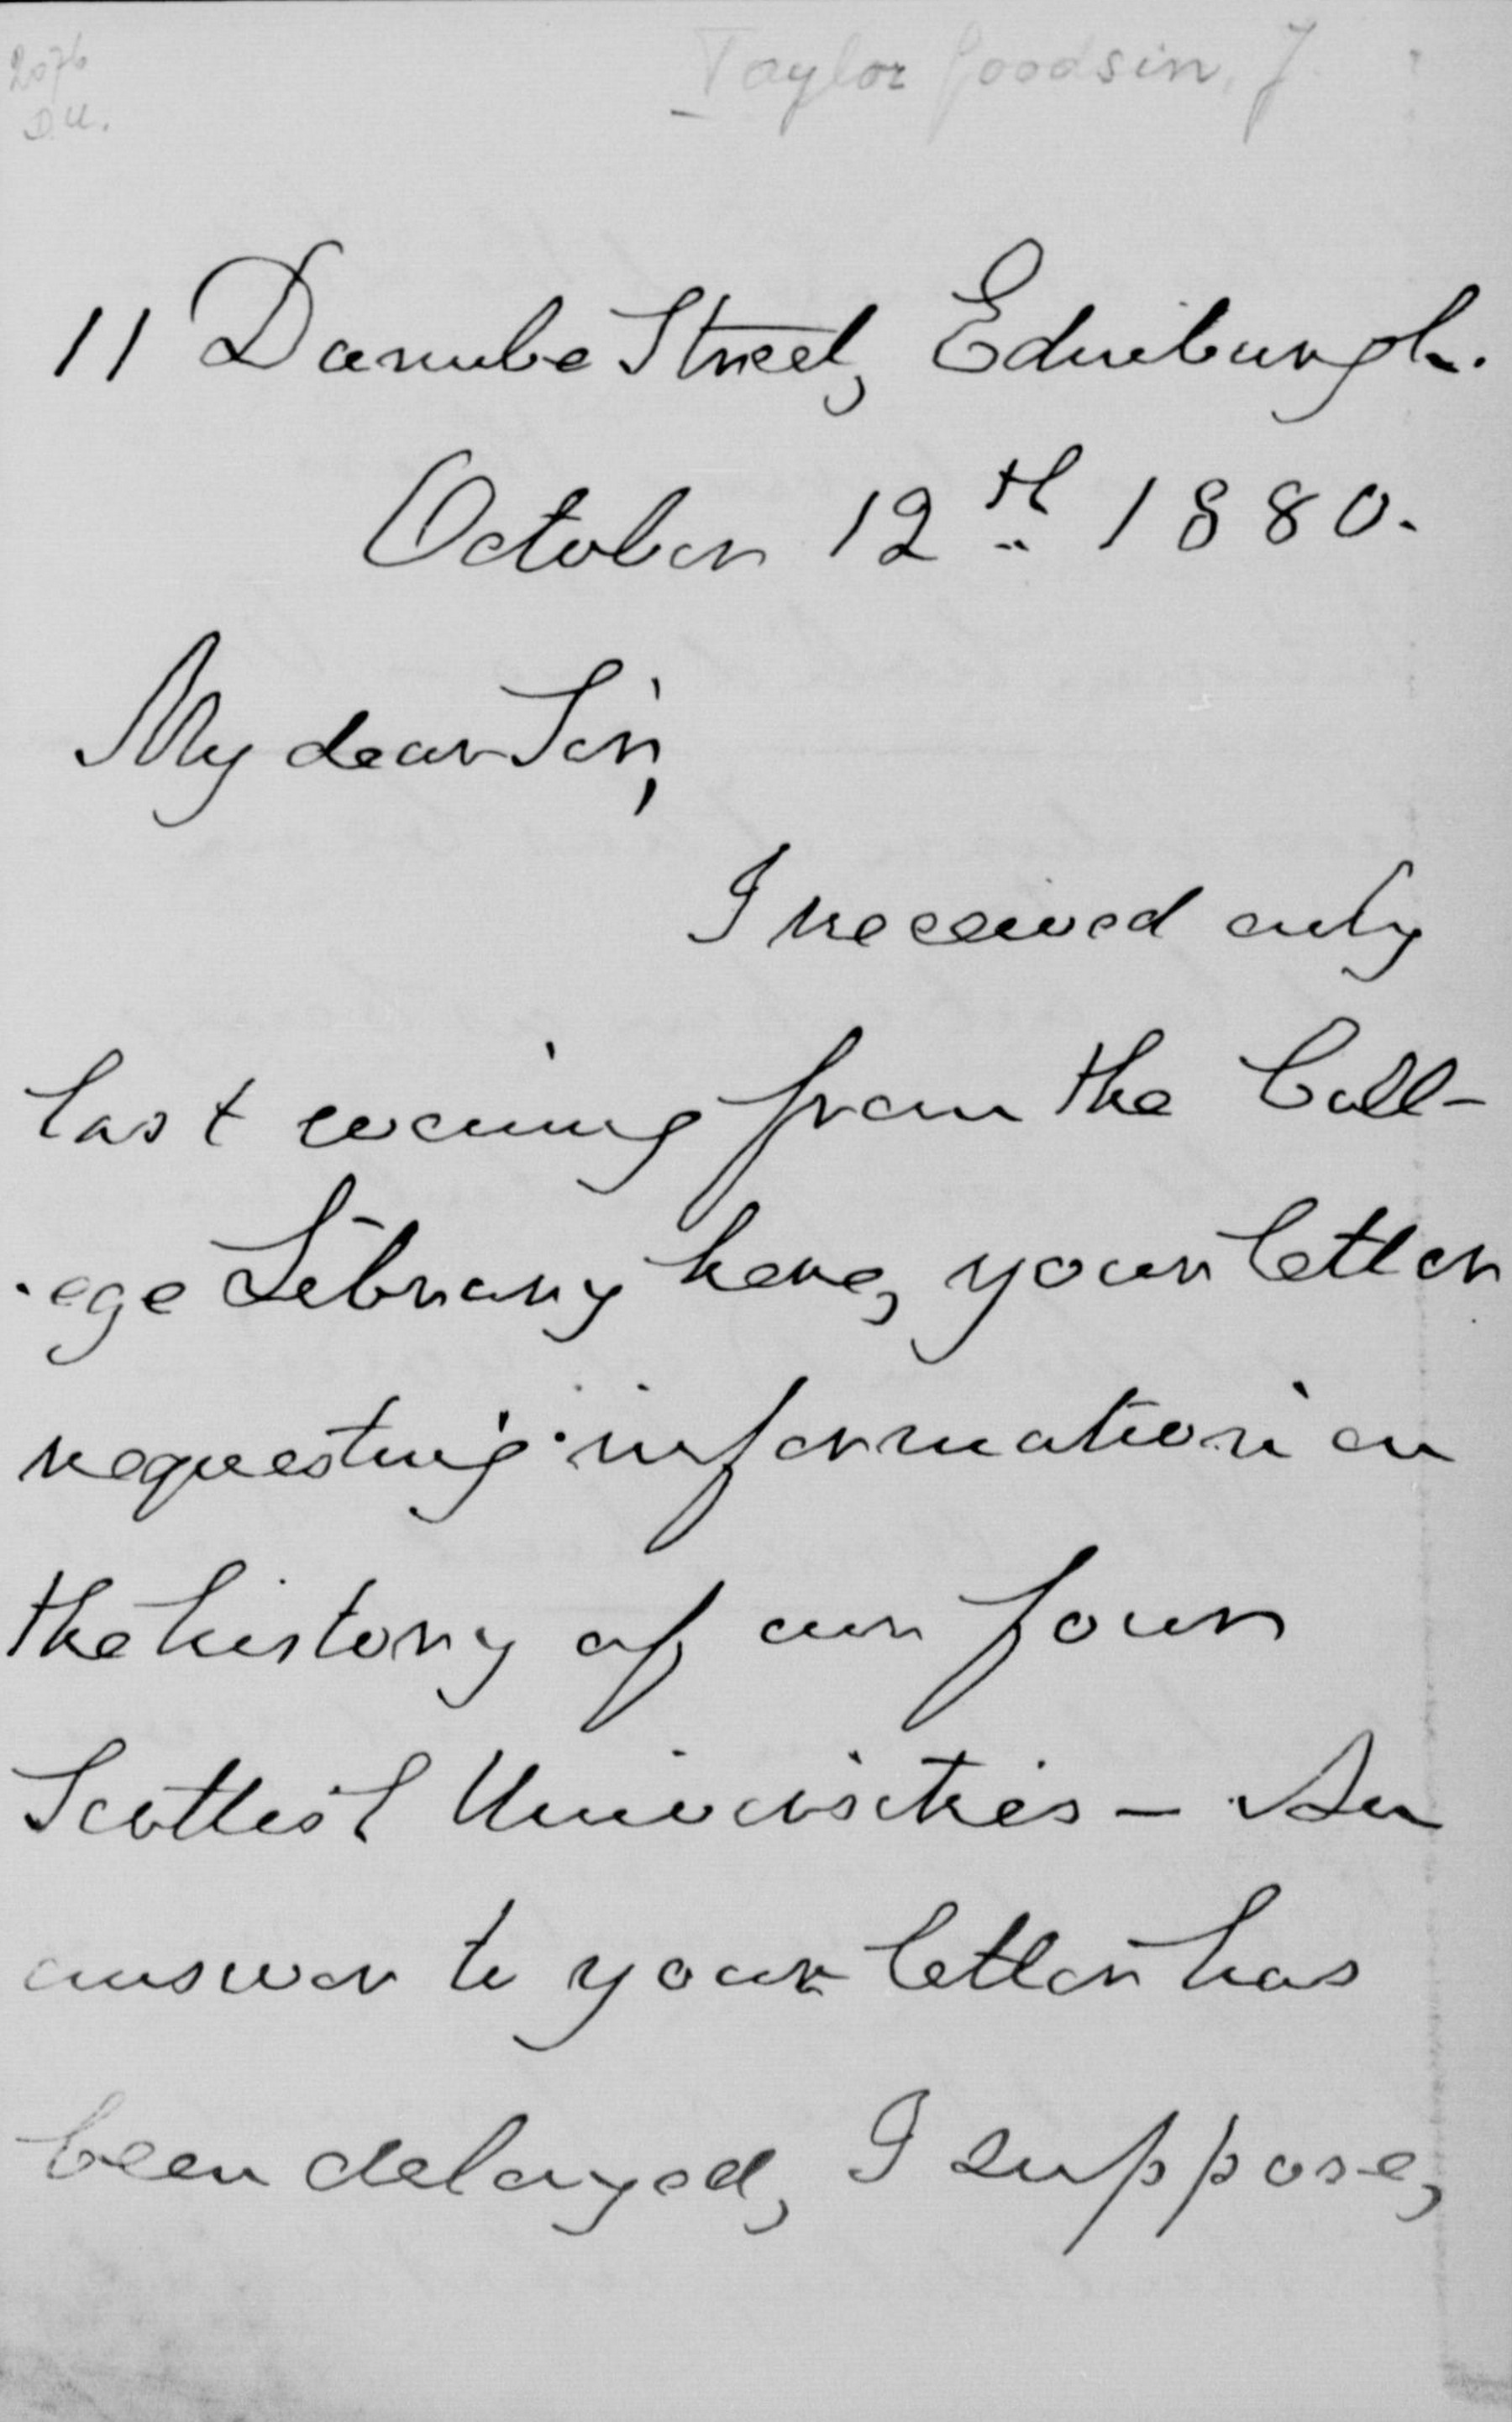 Taylor Goodsin, J.
D.U.
11 Danube Street, Edinburgh.
October 12th 1880.
My dear Sir,
I received only
last evening from the Coll-
-ege Library here, your letter
requesting information on
the history of our four
Scottish Universities - An
answer to your letter has
been delayed, I suppose,